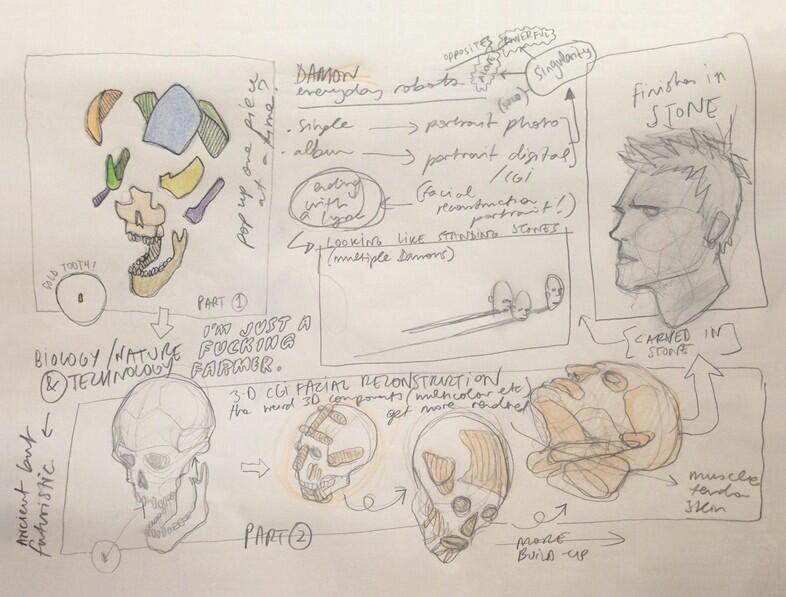 DAMON
everyday robots
OPPOSITES
POWERFUL
ALONE
Singularity
(solo)
. single → portrait photo
. album → portrait digital
/CGI
(facial
reconstruction
portrait!)
ending
with
a
LOOKING LIKE STANDING STONES
(multiple Damons)
pop up one piece
at a time.
GOLD TOOTH!
PART 1
Finishes in
STONE
CARVED IN
STONE
I'M JUST A
FUCKING
FARMER.
BIOLOGY/NATURE
& TECHNOLOGY
Ancient but
futuristic.
3-D CGI FACIAL RECONSTRUCTION
the weird 3D components (multicolor etc)
get more rendered
PART 2
MORE
BUILD-UP
muscle
tendon
skin